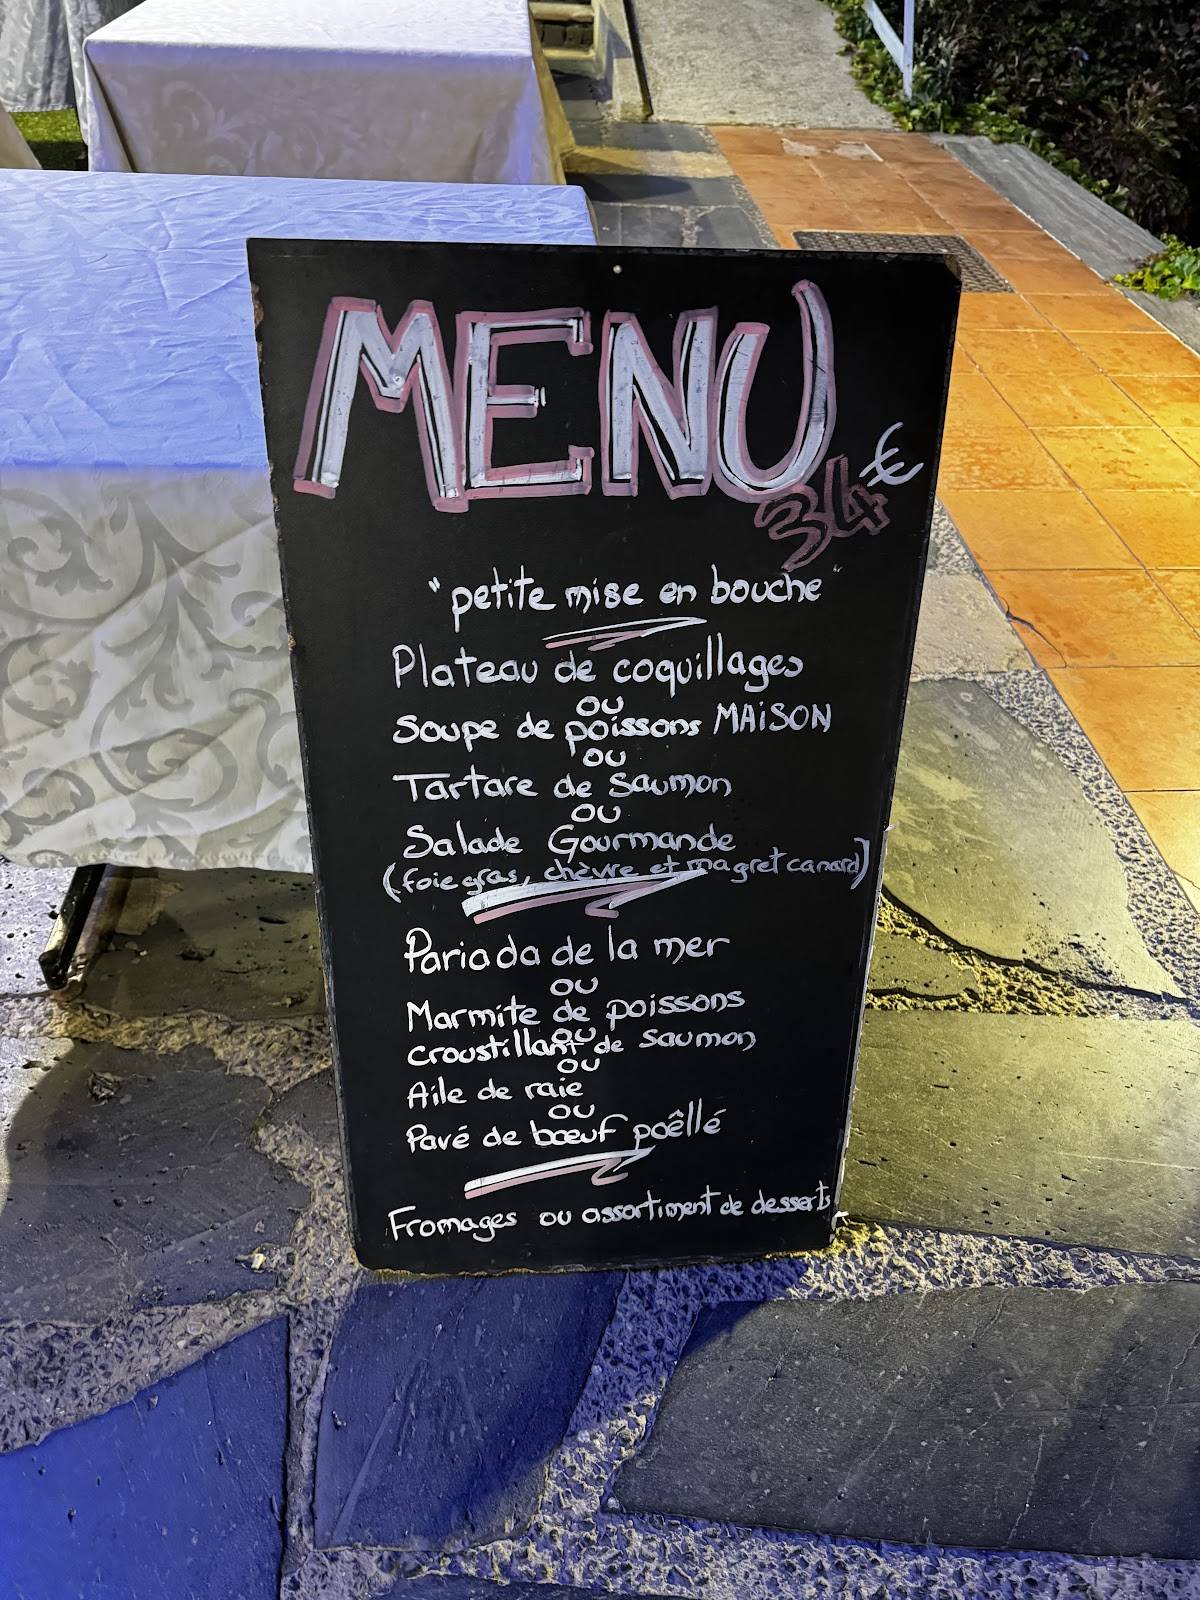 MENU
34€
"petite mise en bouche"
Plateau de coquillages
ou
Soupe de poissons MAiSON
ou
Tartare de Saumon
ou
Salade Gourmande
(foie gras, chèvre et magret canard)
Pariada de la mer
ou
Marmite de poissons
ou
Croustillant de saumon
ou
Aile de raie
ou
Pavé de bœuf poêllé
Fromages ou assortiment de desserts